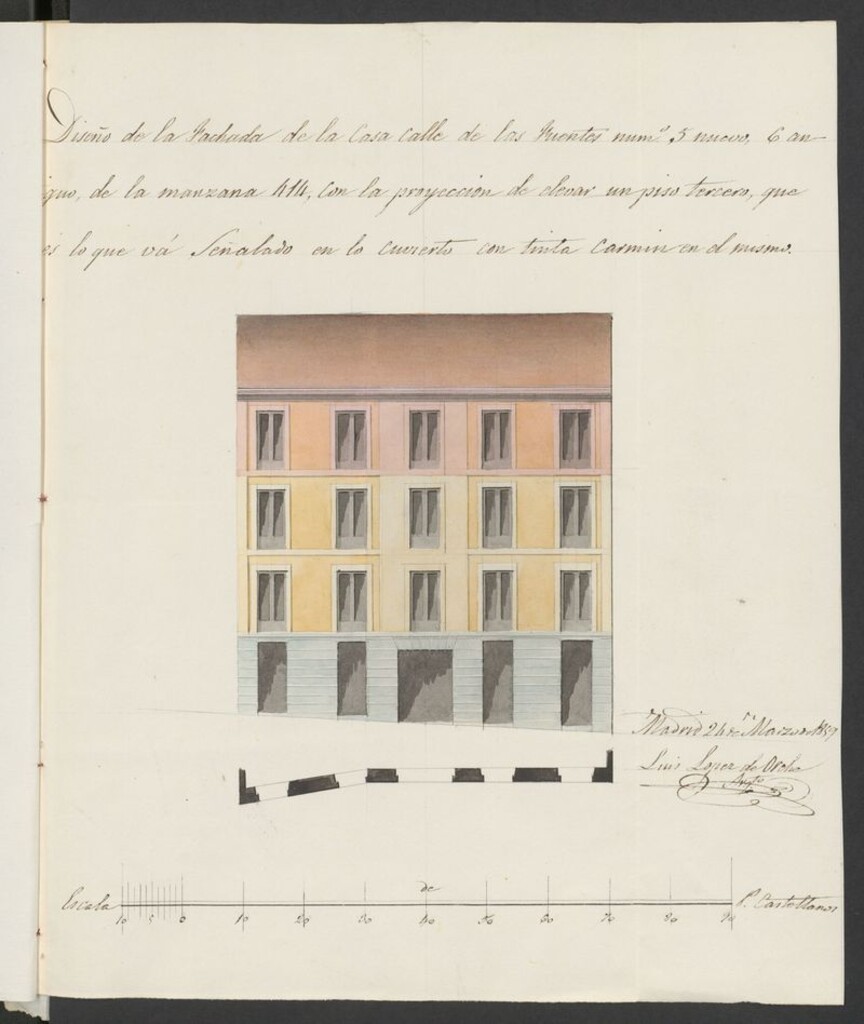 Diseño de la Fachada de la Casa calle de las Fuentes num.º 5 nuevo, 6 an-
guo, de la manzana 414, con la proyeccion de elevar un piso tercero, que
es lo que vá Señalado en lo cuvierto con tinta Carmin en el mismo.
Madrid 24 de Marzo de
Luis Lopez de Orche
Arqto
Escala de P. Castellanos
10 5 0 10 20 30 40 50 60 70 80 90